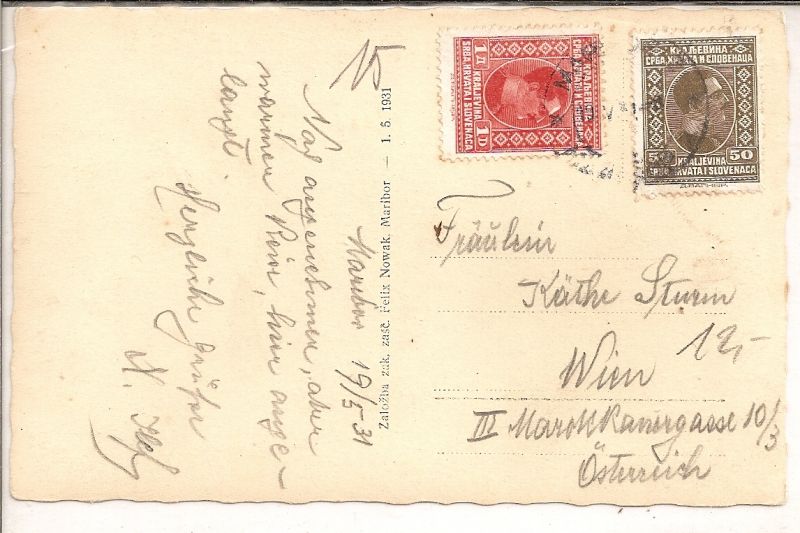 15
Maribor 19/5 31
Nach angenehmer, aber
warmer Reise, hier ange-
langt.
Herzliche Grüße
N.
Založba zak. zašč. Felix Nowak, Maribor — 1. 5. 1931
1Д
КРАЉЕВИНА
СРБА ХРВАТА И СЛОВЕНАЦА
KRALJEVINA
SRBA, HRVATA I SLOVENACA
1D
КРАЉЕВИНА
СРБА, ХРВАТА И СЛОВЕНАЦА
50 50
KRALJEVINA
SRBA, HRVATA I SLOVENACA
Fräulein
Käthe Sturm
Wien
12,-
III Marokkanergasse 10/3
Österreich